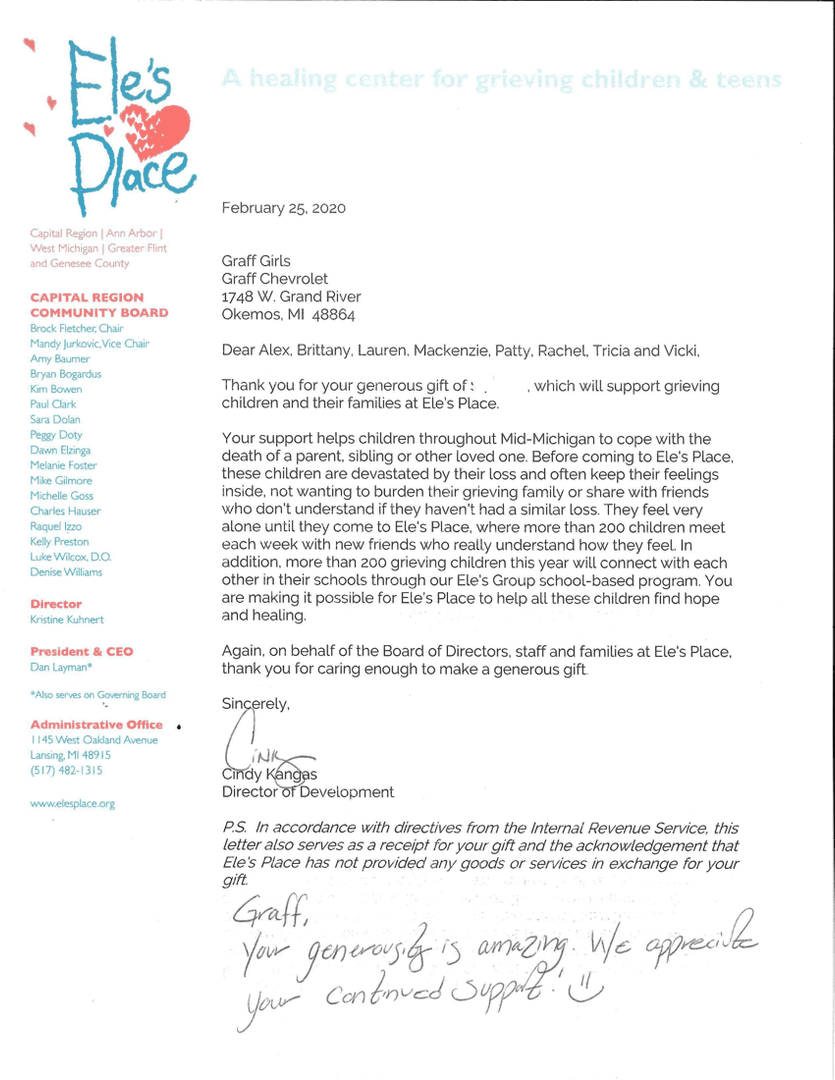 Ele's
Place
A healing center for grieving children & teens
February 25, 2020
Capital Region | Ann Arbor |
West Michigan | Greater Flint
and Genesee County
CAPITAL REGION
COMMUNITY BOARD
Brock Fletcher, Chair
Mandy Jurkovic, Vice Chair
Amy Baumer
Bryan Bogardus
Kim Bowen
Paul Clark
Sara Dolan
Peggy Doty
Dawn Elzinga
Melanie Foster
Mike Gilmore
Michelle Goss
Charles Hauser
Raquel Izzo
Kelly Preston
Luke Wilcox, D.O.
Denise Williams
Director
Kristine Kuhnert
President & CEO
Dan Layman*
*Also serves on Governing Board
Administrative Office
1145 West Oakland Avenue
Lansing, MI 48915
(517) 482-1315
www.elesplace.org
Graff Girls
Graff Chevrolet
1748 W. Grand River
Okemos, MI 48864
Dear Alex, Brittany, Lauren, Mackenzie, Patty, Rachel, Tricia and Vicki,
Thank you for your generous gift of , which will support grieving
children and their families at Ele's Place.
Your support helps children throughout Mid-Michigan to cope with the
death of a parent, sibling or other loved one. Before coming to Ele's Place,
these children are devastated by their loss and often keep their feelings
inside, not wanting to burden their grieving family or share with friends
who don't understand if they haven't had a similar loss. They feel very
alone until they come to Ele's Place, where more than 200 children meet
each week with new friends who really understand how they feel. In
addition, more than 200 grieving children this year will connect with each
other in their schools through our Ele's Group school-based program. You
are making it possible for Ele's Place to help all these children find hope
and healing.
Again, on behalf of the Board of Directors, staff and families at Ele's Place,
thank you for caring enough to make a generous gift.
Sincerely,
Cindy Kangas
Director of Development
P.S. In accordance with directives from the Internal Revenue Service, this
letter also serves as a receipt for your gift and the acknowledgement that
Ele's Place has not provided any goods or services in exchange for your
gift.
Graff,
Your generousity is amazing. We appreciate
your continued support!